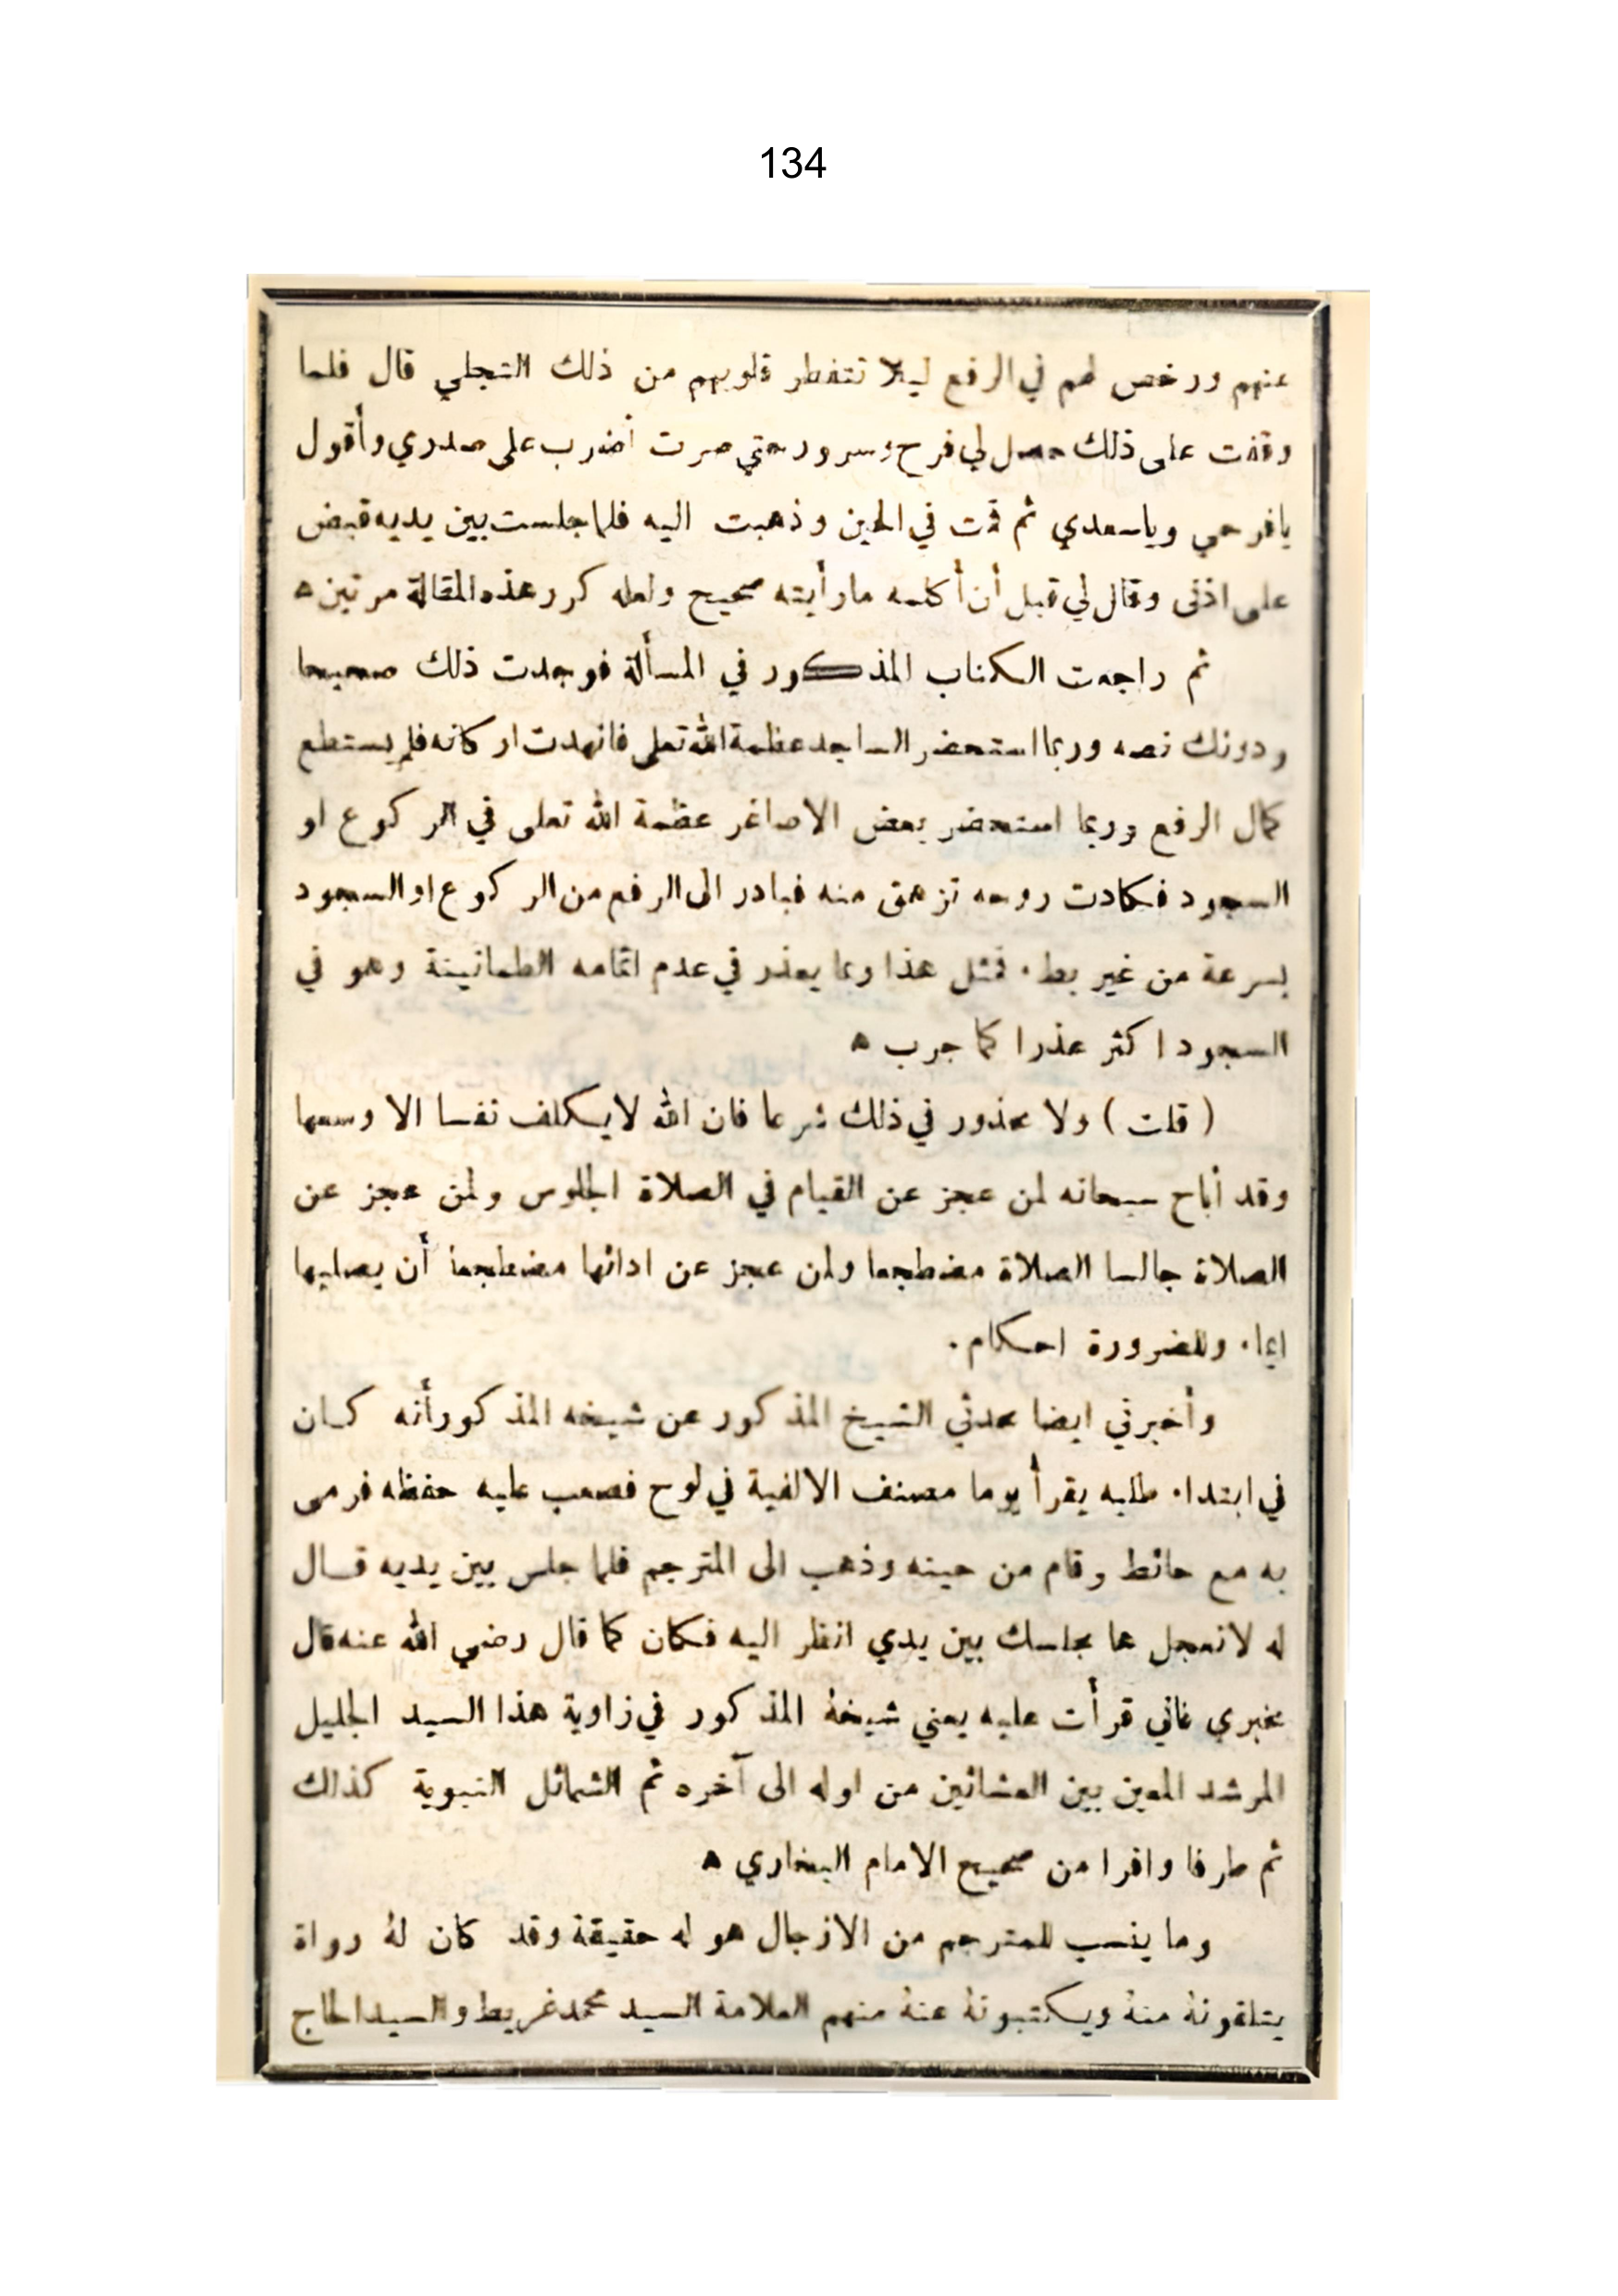 134
عنهم ورخص لهم في الرفع ليلا تتفطر قلوبهم من ذلك التجلي قال فلما
وقفت على ذلك حصل لي فرح وسرور حتى صرت أضرب على صدري وأقول
يافرحي وياسعدي ثم قمت في الحين وذهبت اليه فلما جلست بين يديه قبض
على اذني وقال لي قبل أن أكلمه مارأيته صحيح ولعله كرر هذه المقالة مرتين ه
ثم راجعت الكتاب المذكور في المسألة فوجدت ذلك صحيحا
ودونك نصه وربما استحضر الساجد عظمة الله تعلى فانهدت اركانه فلم يستطع
كمال الرفع وربما استحضر بعض الاصاغر عظمة الله تعلى في الركوع او
السجود فكادت روحه تزهق منه فبادر الى الرفع من الركوع او السجود
بسرعة من غير بطء فمثل هذا ربما يعذر في عدم اتمامه الطمانينة وهو في
السجود اكثر عذرا كما جرب ه
( قلت ) ولا محذور في ذلك شرعا فان الله لايكلف نفسا الا وسعها
وقد أباح سبحانه لمن عجز عن القيام في الصلاة الجلوس ولمن عجز عن
الصلاة جالسا الصلاة مضطجعا ولمن عجز عن ادائها مضطجعا أن يصليها
ايماء وللضرورة احكام .
وأخبرني ايضا محدثي الشيخ المذكور عن شيخه المذكور أنه كان
في ابتداء طلبه يقرأ يوما مصنف الالفية في لوح فصعب عليه حفظه فرمى
به مع حائط وقام من حينه وذهب الى المترجم فلما جلس بين يديه قال
له لاتعجل عما بجلسك بين يدي انظر اليه فكان كما قال رضي الله عنه قال
مخبري فاني قرأت عليه يعني شيخهُ المذكور في زاوية هذا السيد الجليل
المرشد المعين بين العشائين من اوله الى آخره ثم الشمائل النبوية كذلك
ثم طرفا وافرا من صحيح الامام البخاري ه
وما ينسب للمترجم من الازجال هو له حقيقة وقد كان لهُ رواة
يتلقونهُ منهُ ويكتبونهُ عنهُ منهم العلامة السيد محمد غريط والسيد الحاج